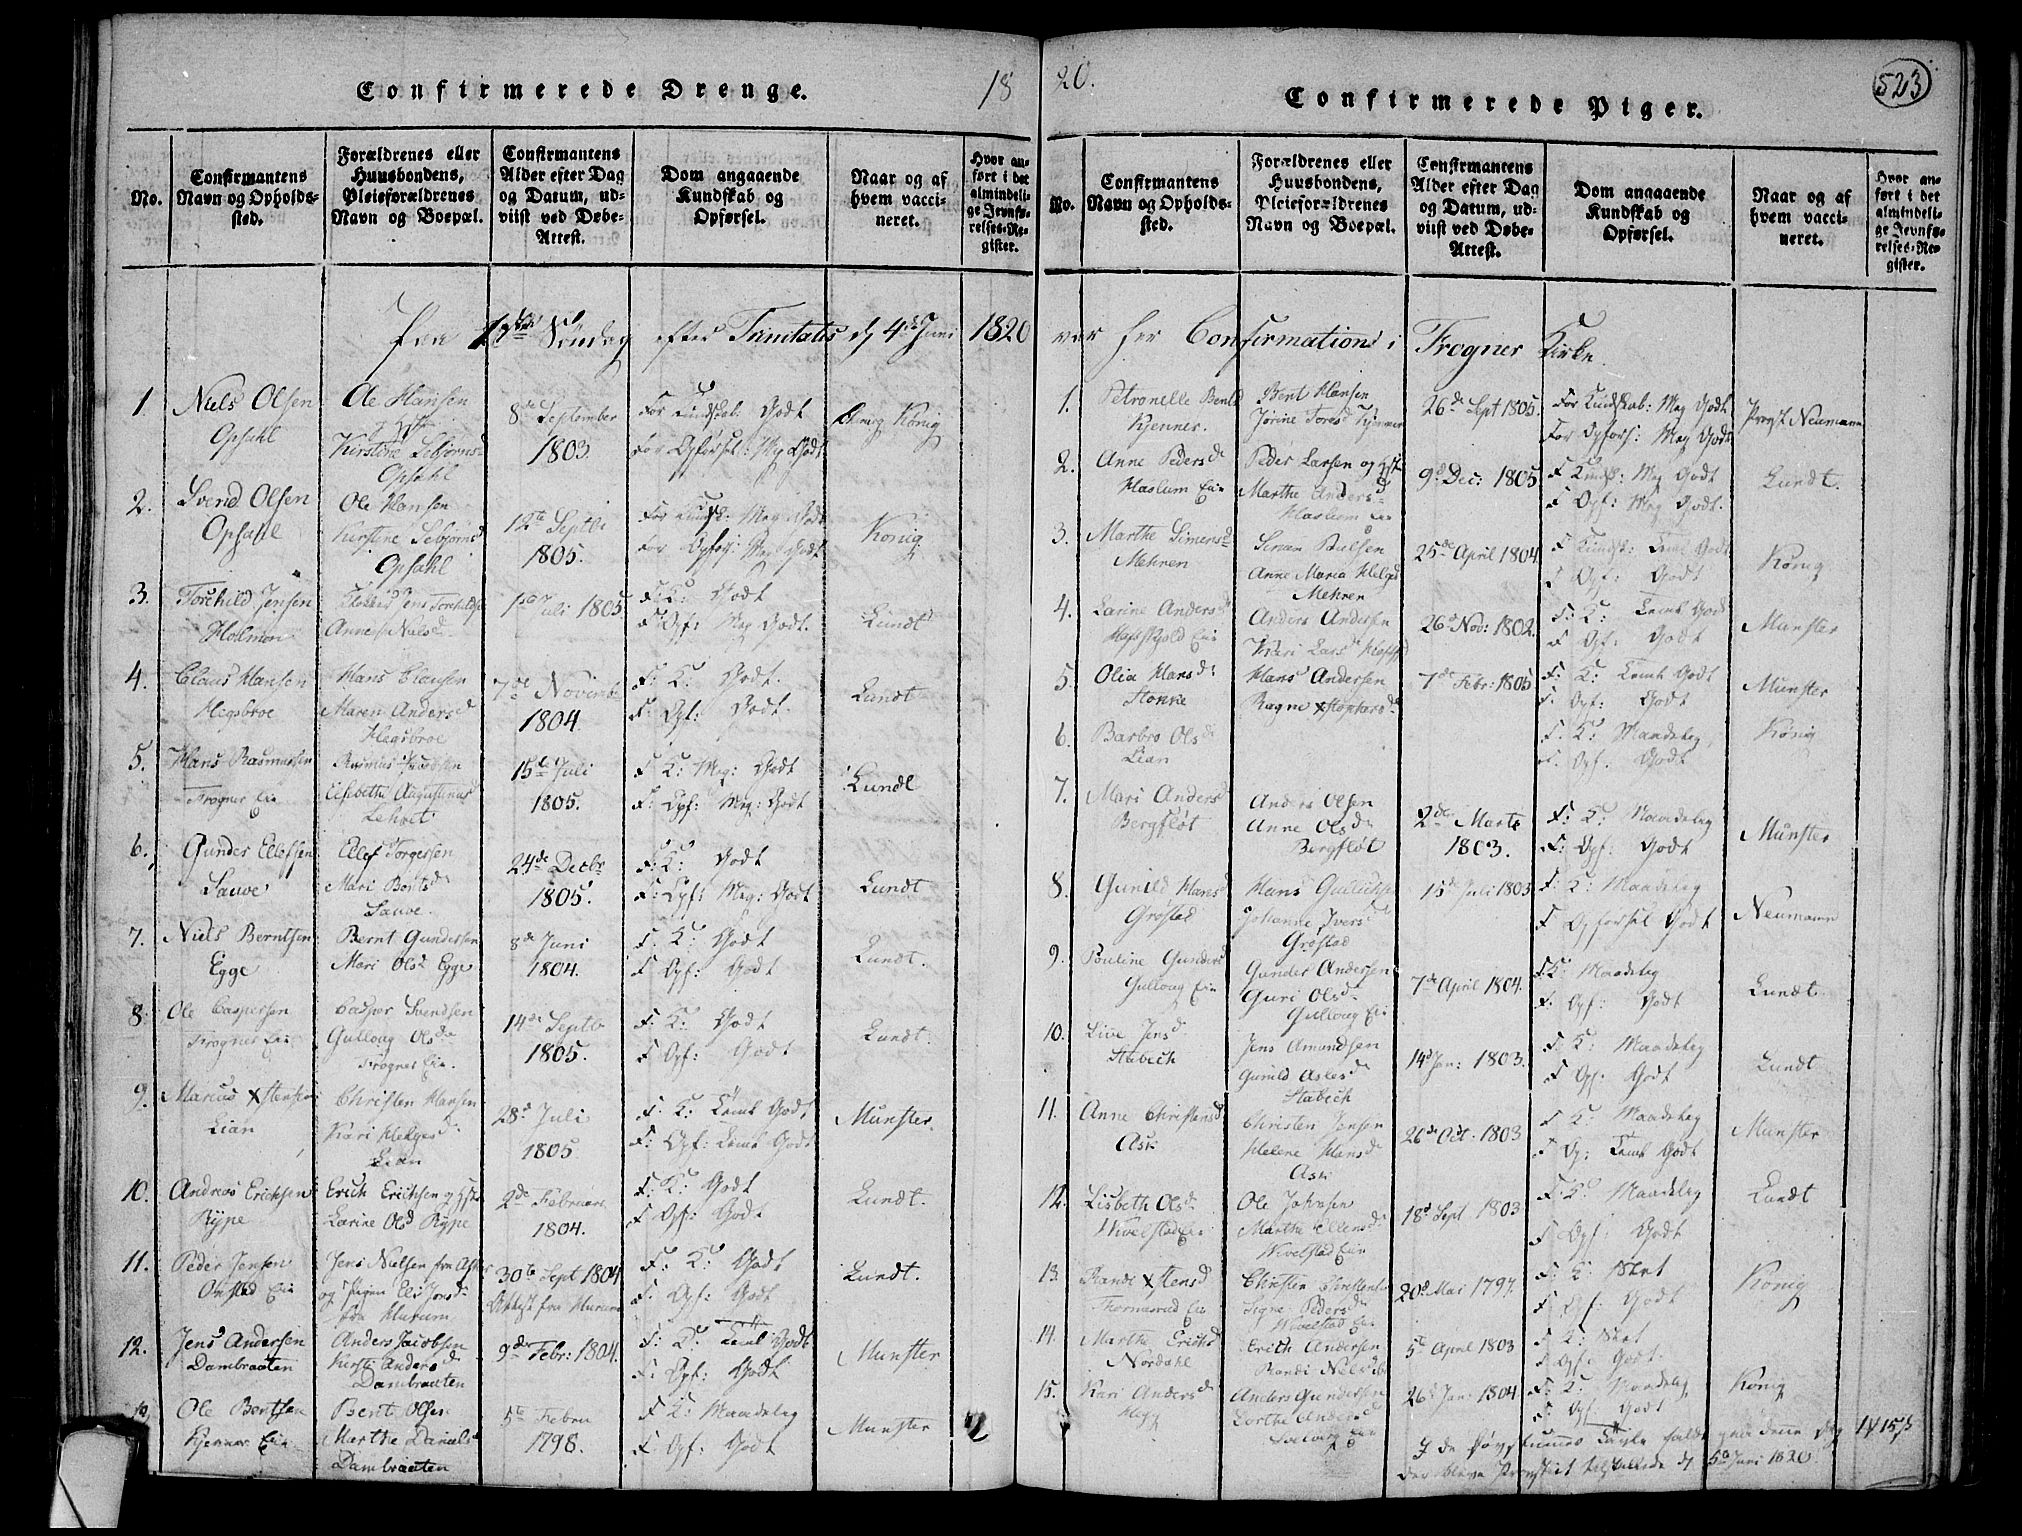 Confirmerede Drenge.
18
No.
Confirmantens Navn og Opholds-sted.
Forældrenes eller Huusbondens, Pleieforældrenes Navn og Boepæl.
Confirmantens Alder efter Dag og Datum, ud-viist ved Døbe-Attest.
Dom angaaende Kundskab og Opførsel.
Naar og af hvem vacci-neret.
Hvor an-ført i det almindeli-ge Jevnfø-relses-Re-gister.
Paa Søndag efter Trinitatis d 4de Juni 1820
1
Niels Olsen
Opsahl
Ole Hansen
Kirstine
Opsahl
8de September
1803.
For Kundskab: Godt
For Opførsel: Mg Godt
König
2.
Svend Olsen
Opsahl
Ole Hansen
Kirstine
Opsahl
12te Septbr
1805.
For Kundsk: Meg Godt
For Opførs: Meg Godt
König
3.
Torchild Jensen
Holmen
Jens Torchilds
Anne Nielsd
1ste Juli 1805
F: K: Godt
F. Opf: Meg Godt.
Lundt
4.
Claus Hansen
Hegsbroe
Hans Clausen
Maren Andersd
Hegsbroe
7de Novemb
1804.
F: K: Godt.
F. Opf: Godt.
Lundt
5.
Hans Rasmussen
Frogner Eie
Rasmus Jacobsen
Elsebethe Augustinus
15de Juli
1805.
F. K: Meg: Godt
F: Opf: Meg: Godt
Lundt
6.
Gunder Ellefsen
Sauve
Ellef Torgersen
Mari
Sauve.
24de Decbr
1805.
F: K: Godt
F: Opf: Meg: Godt
Lundt
7.
Niels Berntsen
Egge
Bernt Gundersen
Mari Olsd Egge
8de Juni
1804.
F. K: Godt
F Opf: Godt
Lundt.
8.
Ole Caspersen
Frogner Eie
Casper Svendsen
Gulloug Olsd
Frogner Eie.
14de Septb
1805.
F. K: Godt
F Opf: Godt
Lundt.
9.
Marcus Xstensen
Lian
Christen Hansen
Kari Helgesd
Lian
28d Juli
1805
F: K: Temt Godt
F: Opf: Temt Godt
Munster.
10.
Andreas Erichsen
Rype
Erich Erichsen og Hst
Larine Olsd Rype
2de Februar
1804.
F: K: Godt
F. Opf: Godt
Lundt.
11.
Peder Jensen
Onsted Eie
Jens Nielsen fra Asker
og Pigen Eli Jonsd
fra Hurum
30te Sept 1804
Attest fra Hurum
F: K: Godt
F: Opf: Godt
Lundt.
12.
Jens Andersen
Dambraaten
Anders Jacobsen
Kirsti Andersd
Dambraaten
9de Febr: 1804.
F: K: Temt Godt
F: Opf: Godt
Munster
Ole Bentsen
Kjenner Eie
Bent Olsen
Marthe Daniels
Dambraaten
5te Febru
1798.
F: K: Maadelig
F Opf: Godt
Munster
20.
523
Confirmerede Piger.
No.
Confirmantens Navn og Opholds-sted.
Forældrenes eller Huusbondens, Pleieforældrenes Navn og Boepæl.
Confirmantens Alder efter Dag og Datum, ud-viist ved Døbe-Attest.
Dom angaaende Kundskab og Opførsel.
Naar og af hvem vacci-neret.
Hvor an-ført i det almindeli-ge Jevnfø-relses-Re-gister.
var her Confirmation i Frogner Kirke.
1.
Petronelle Bentsd
Kjenner.
Bent Hansen
Jørine Toresd Kjenner
26de Sept 1805.
For Kundskab: Meg Godt
For Opførs: Meg Godt
Provst Neumann
2.
Anne Pedersd
Haslum Eie
Peder Larsen og Hst
Marthe Andersd
Haslum Eie
9d Dec: 1805
F Kundsk: Meg Godt
F Opf: Meg Godt.
Lundt.
3.
Marthe Simensd
Mehren
Simen Bulsen
Anne Maria Helgesd
Mehren
25de April 1804.
F Kundsk: Temt Godt
F Opf: Godt
König
4.
Larine Andersd
Anders Andersen
Kari Larsd
26d Nov: 1802.
F. K: Temt Godt
F Opf: Godt
Munster
5.
Olia Hansd
Stonne
Hans Andersen
Ragne Xstophersd
7de Febr: 1805
F. K: Temt Godt
F. Opf: Godt
Munster
6.
Barbro Olsd
Lian
F. K: Maadelig
F. Opf. Godt
König
7.
Mari Andersd
Bergfløt
Anders Olsen
Anne Olsd
Bergfløt
2de Marts
1803.
F: K: Maadelig
F: Opf: Godt
Munster
8.
Gunild Hansd
Grøstad
Hans Gulichsen
Johanne Iversd
Grøstad
15d Juli 1803
F: K: Maadelig
F Opførsel Godt
Neumann
9.
Pouline Gundersd
Gulloug Eie
Gunder Andersen
Guri Olsd
Gulloug Eie
7de April 1804.
F. K: Maadelig
F. Opf: Godt
Lundt
10.
Live Jensd
Stabech
Jens Amundsen
Gunild Aslesd
Stabech
14d Jan: 1803.
F. K: Maadelig
F Opf. Godt
Lundt
11.
Anne Christensd
Ask
Christen Jensen
Helene Hansd
Ask
26de Oct. 1803
F K: Maadelig
F Op: Temt Godt
Munster
12.
Lisbeth Olsd
Wivelstad Eie
Ole Johnsen
Marthe Ellensd
Wivelstad Eie
18d Sept 1803
F. K: Maadelig
F Opf: Godt
Lundt
13.
Rande Xstensd
Thormesrud Eie
Christen Christensen
Signe Pedersd
Wivelstad Eie
20d Mai 1797.
F: K: Slet
F Opf: Godt
König
14.
Marthe Erichsd
Nordahl
Erich Andersen
Randi Nielsd
5te April 1803
F: K: Slet
F Opf: Godt.
15.
Kari Andersd
Hegg
Anders Gundersen
Dorthe Andersd
26d Jan: 1804
F. K: Maadelig
F. Opf. Godt
König
denne Dag
5te Juni 1820.